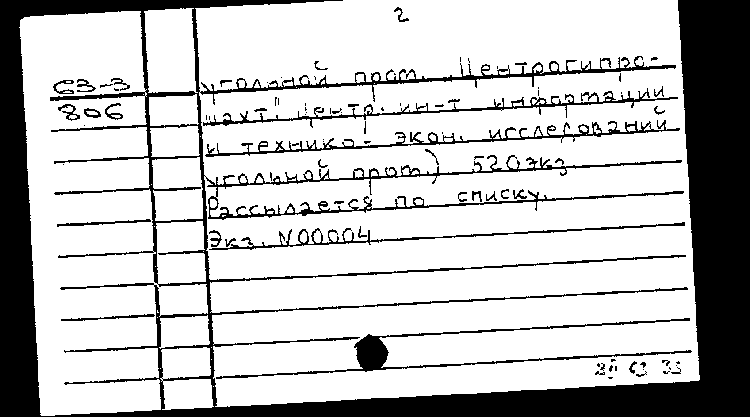 2
63-3
806
угольной пром. "Центрогипро-
шахт" Центр. ин-т информации
и технико-экон. исследований
угольной пром.) 520экз.
Рассылается по списку.
Экз. N00004
2II 63 33